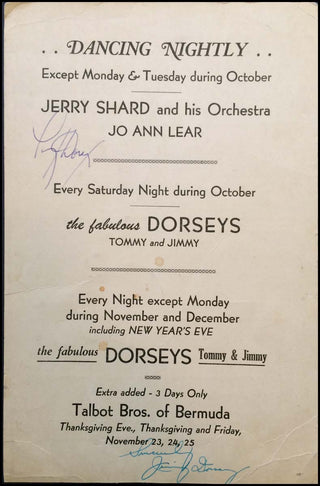 . . DANCING NIGHTLY . .
Except Monday & Tuesday during October
JERRY SHARD and his Orchestra
JO ANN LEAR
Every Saturday Night during October
the fabulous DORSEYS
TOMMY and JIMMY
Every Night except Monday
during November and December
including NEW YEAR'S EVE
the fabulous DORSEYS Tommy & Jimmy
Extra added - 3 Days Only
Talbot Bros. of Bermuda
Thanksgiving Eve., Thanksgiving and Friday,
November 23, 24, 25
Sincerely
Jimmy Dorsey